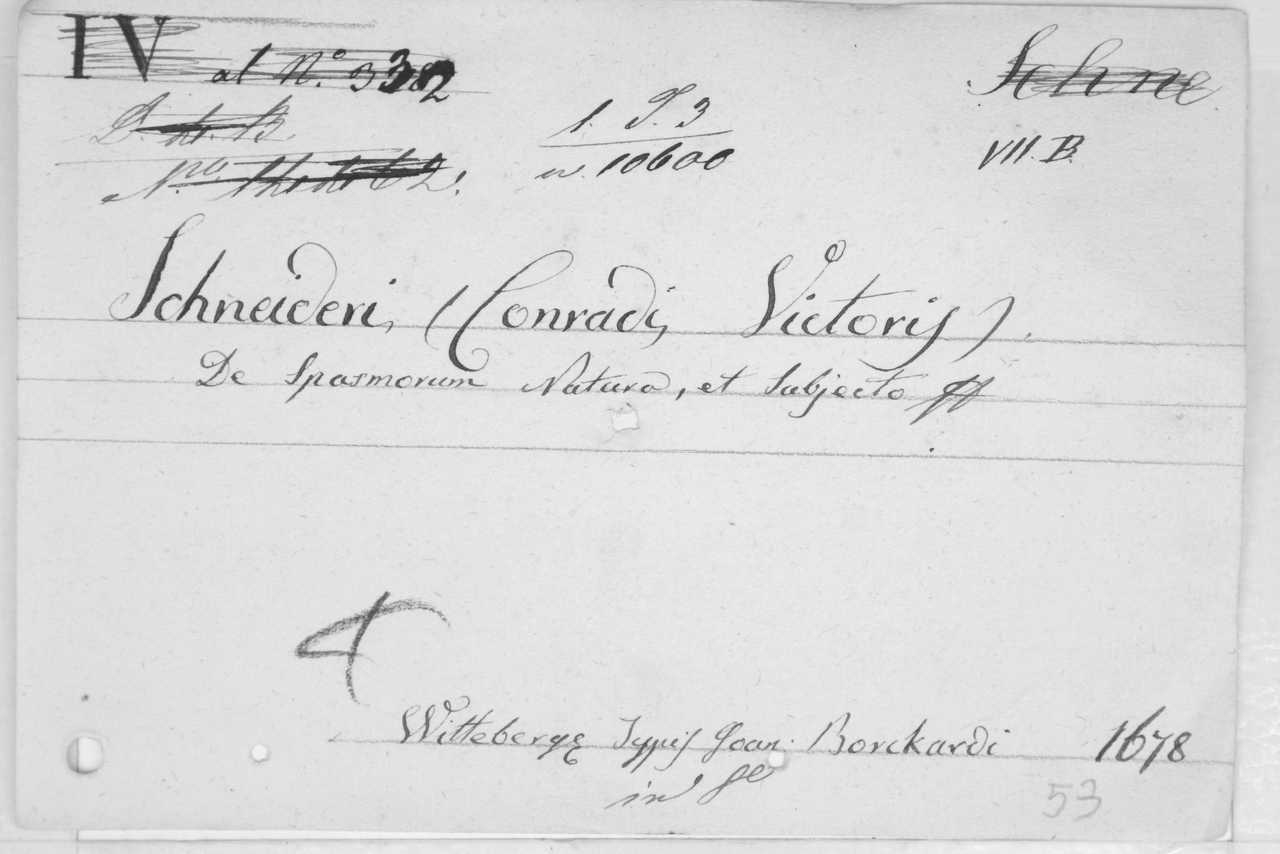 IV al N.º 3382
Schne
1. T. 3
10600
VII. B.
Schneideri, (Conradi, Victorij).
De Spasmorum Natura, et Subjecto
4
Wittebergę Typis Joan. Borckardi 1678
in 8º
53